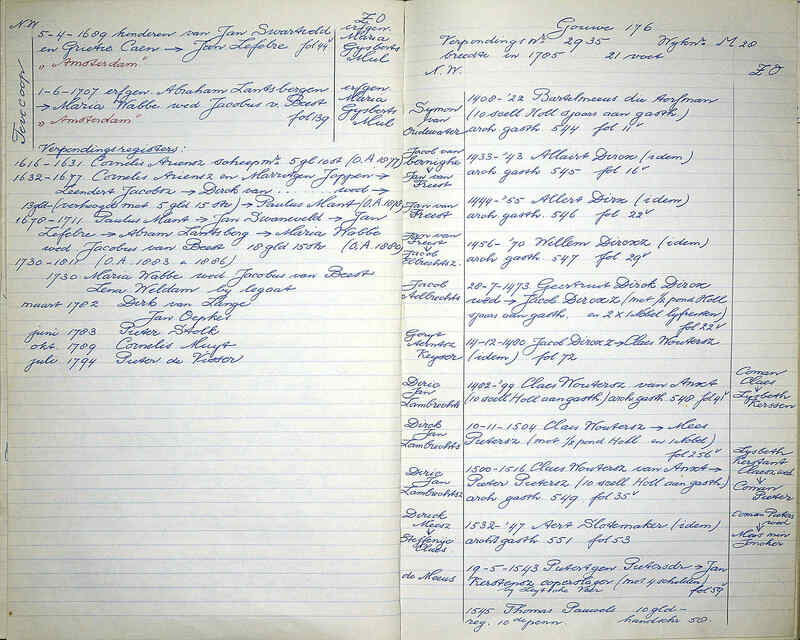 N.W.
Z O
5-4-1689 kinderen van Jan Swartveld
en Grietie Caen → Jan Lefebre fol 44v
"Amsterdam"
erfgen.
Maria
Gysberts
Mul
1-6-1707 erfgen. Abraham Lantsbergen
→ Maria Wabbe wed Jacobus v. Beest
"Amsterdam" fol 139
erfgen
Maria
Gysberts
Mul
Verpondingsregisters:
1616-1631 Cornelis Ariensz scheepmr. 5 gl 10 st (O.A. 1877)
1632-1677 Cornelis Ariensz en Marritgen Joppen →
Leendert Jacobsz → Dirck van ... wed →
13 gld (verhoogde met 5 gld 15 stv) → Paulus Ment (O.A. 1878)
1670-1711 Paulus Ment → Jan Swaneveld → Jan
Lefebre → Abram Lantsberg → Maria Wabbe
wed Jacobus van Beest 18 gld 15 stv (O.A. 1880)
1730-1811 (O.A. 1883 a 1886)
1730 Maria Wabbe wed Jacobus van Beest
Lena Weldam by legaat
maart 1782 Dirk van Lange
Jan Oepkes
juni 1783 Pieter Stolk
okt. 1789 Cornelis Muyt
juli 1794 Pieter de Visser
Gouwe 176
Verpondings no. 2935 Wykno. M 20
breedte in 1785 21 voet
N.W.
Z O
Symon
van
Oudewater
1408-'22 Bartelmeeus die
(10 scell Holl spaas aan gasth)
arch gasth 544 fol 11v
Jacob van
↓
Jan van
Treest
1433-'43 Allaert Dircx (idem)
arch gasth 545 fol 16v
Jan van
Treest
1444-'55 Allert Dirx (idem)
arch gasth 546 fol 22v
Jan van
Treest
↓
Jacob
Elbrechtsz.
1456-'70 Willem Dircxz (idem)
arch gasth 547 fol 29v
Jacob
Aelbrechts
28-7-1473 Geertruit Dirck Dircx
wed → Jacob Dircxsz (met ½ pond Holl
spaas aan gasth. en 2 x 1 nobel lyfrenten)
fol 22v
Keyser
14-12-1480 Jacob Dircxz → Claes Woutersz
(idem) fol 72
Diric
Jan
Lambrechts
1482-'99 Claes Woutersz van Anxt
(10 scell Holl aan gasth) arch gasth 548 fol 41v
Coman
Claes
↓
Lysbeth
Kerssen
Dirck
Jan
Lambrechts
10-11-1504 Claes Woutersz → Mees
Pietersz (met ½ pond Holl en 1 nobel)
fol 256v
Diric
Jan
Lambrechtsz
1500-1516 Claes Woutersz van Anxt →
Pieter Pietersz (10 scell Holl aan gasth)
arch gasth 549 fol 35v
Lysbeth
Kerstant
Claesz wed
↓
Coman
Pieter
Dirick
Meesz
↓
Steffenge
Claes
1532-'47 Aert Slotemaker (idem)
arch gasth 551 fol 53
Coman Pieters
wed
↓
de Meeus
19-5-1543 Pietertgen Pietersdr → Jan
Kerstensz coperslager (met 4 schilden)
fol 59v
1545 Thomas Pauwels 10 gld-
reg. 10de penn. 58